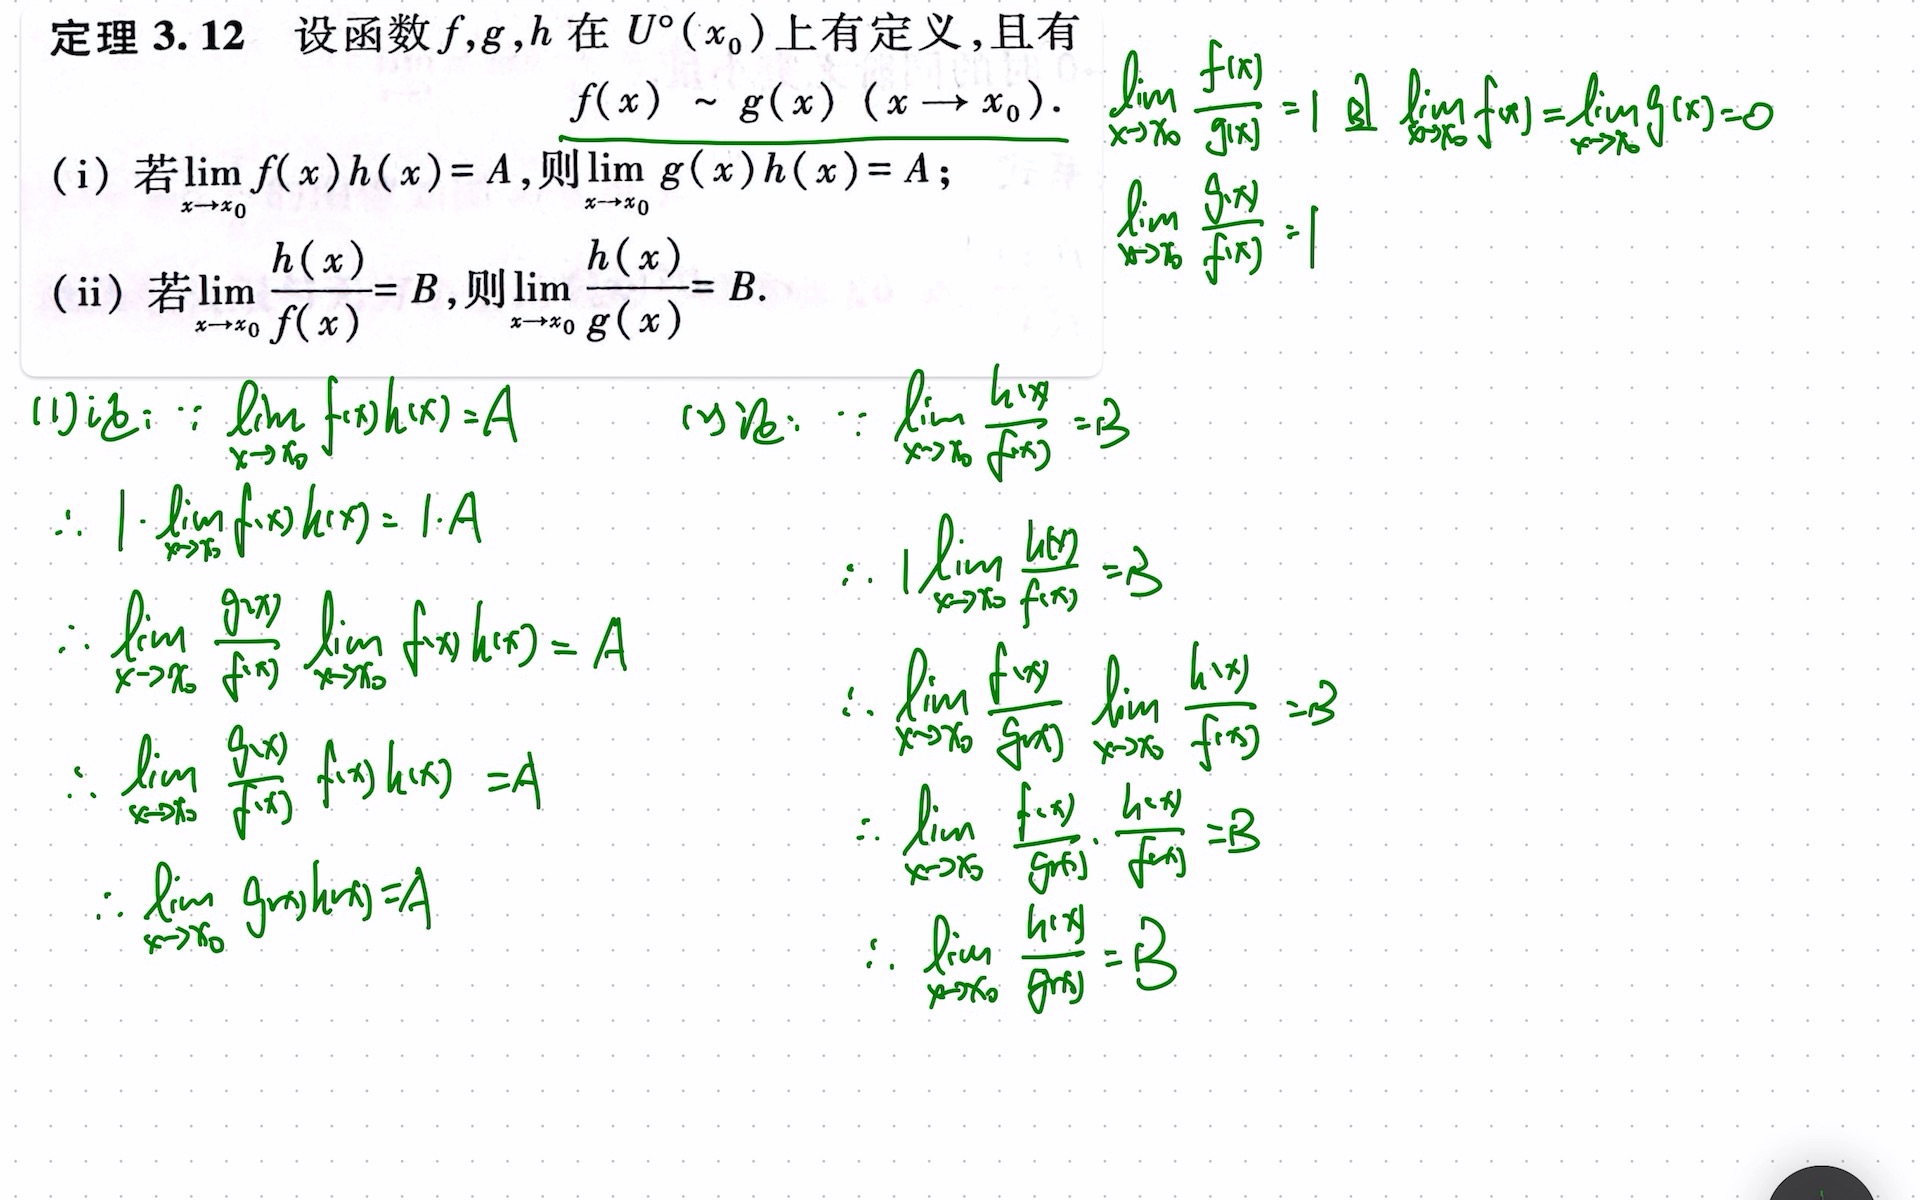 定理 3.12 设函数 f,g,h 在 U°(x₀)上有定义,且有
f(x) ~ g(x) (x → x₀).
(i) 若 lim_{x→x₀} f(x)h(x) = A,则 lim_{x→x₀} g(x)h(x) = A;
(ii) 若 lim_{x→x₀} h(x)/f(x) = B,则 lim_{x→x₀} h(x)/g(x) = B.
lim_{x→x₀} f(x)/g(x) = 1 且 lim_{x→x₀} f(x) = lim_{x→x₀} g(x) = 0
lim_{x→x₀} g(x)/f(x) = 1
(1) 证: ∵ lim_{x→x₀} f(x)h(x) = A
∴ 1 · lim_{x→x₀} f(x)h(x) = 1·A
∴ lim_{x→x₀} g(x)/f(x) lim_{x→x₀} f(x)h(x) = A
∴ lim_{x→x₀} g(x)/f(x) f(x)h(x) = A
∴ lim_{x→x₀} g(x)h(x) = A
(2) 证: ∵ lim_{x→x₀} h(x)/f(x) = B
∴ 1 lim_{x→x₀} h(x)/f(x) = B
∴ lim_{x→x₀} f(x)/g(x) lim_{x→x₀} h(x)/f(x) = B
∴ lim_{x→x₀} f(x)/g(x) · h(x)/f(x) = B
∴ lim_{x→x₀} h(x)/g(x) = B